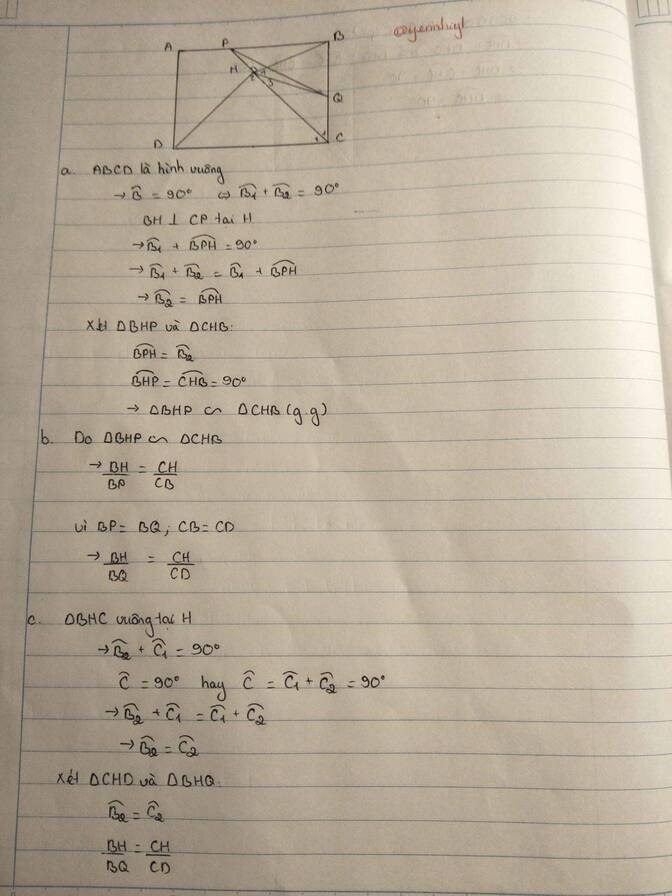 @yennhuyt
A P B
H 1 2 3
Q
D C
a. ABCD là hình vuông
→ B̂ = 90° ⇔ B̂₁ + B̂₂ = 90°
BH ⊥ CP tại H
→ B̂₁ + B͡PH = 90°
→ B̂₁ + B̂₂ = B̂₁ + B͡PH
→ B̂₂ = B͡PH
Xét ΔBHP và ΔCHB:
B͡PH = B̂₂
B͡HP = C͡HB = 90°
→ ΔBHP ∽ ΔCHB (g.g)
b. Do ΔBHP ∽ ΔCHB
→ BH/BP = CH/CB
vì BP = BQ; CB = CD
→ BH/BQ = CH/CD
c. ΔBHC vuông tại H
→ B̂₂ + Ĉ₁ = 90°
Ĉ = 90° hay Ĉ = Ĉ₁ + Ĉ₂ = 90°
→ B̂₂ + Ĉ₁ = Ĉ₁ + Ĉ₂
→ B̂₂ = Ĉ₂
Xét ΔCHD và ΔBHQ
B̂₂ = Ĉ₂
BH/BQ = CH/CD